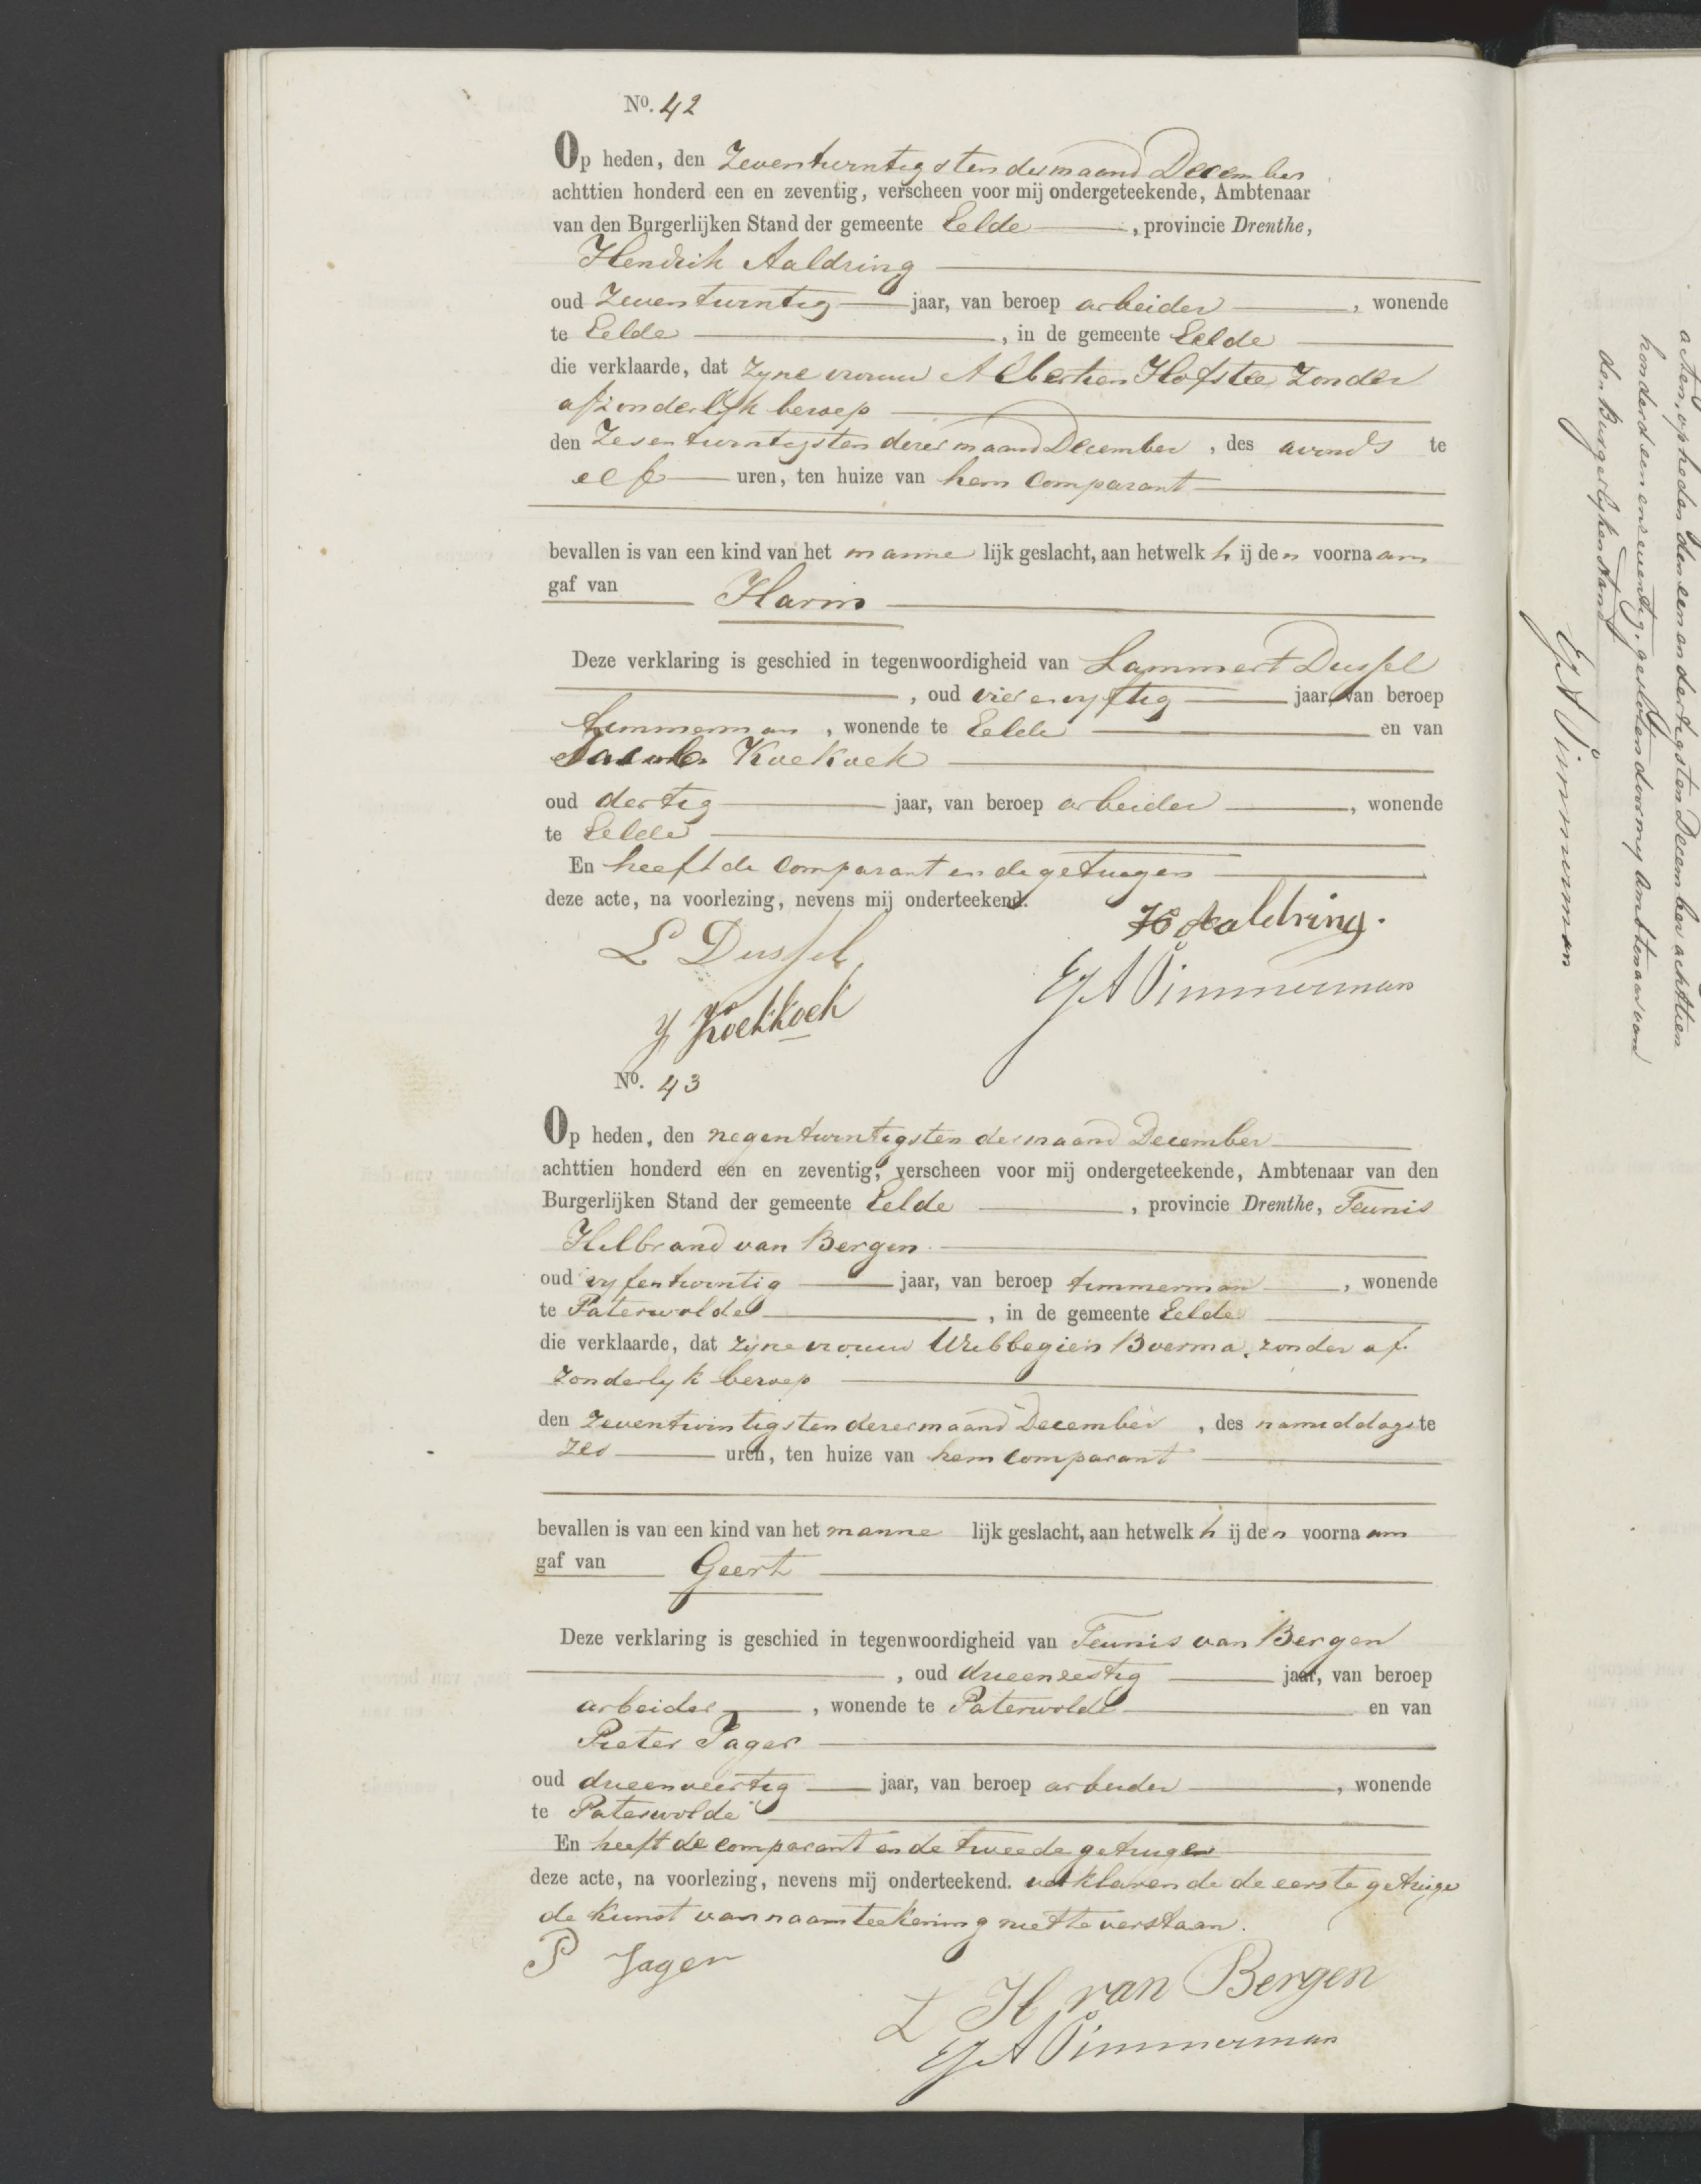 No. 42
Op heden, den Zeventwintigsten der maand December
achttien honderd een en zeventig, verscheen voor mij ondergeteekende, Ambtenaar
van den Burgerlijken Stand der gemeente Eelde, provincie Drenthe,
Hendrik Aaldring
oud Zeventwintig jaar, van beroep arbeider, wonende
te Eelde, in de gemeente Eelde
die verklaarde, dat zyne vrouw Albertien Hofstee zonder
afzonderlyk beroep
den Zesentwintigsten dezer maand December, des avonds te
elf uren, ten huize van hem Comparant
bevallen is van een kind van het mannelijk geslacht, aan hetwelk hij den voornaam
gaf van Harm
Deze verklaring is geschied in tegenwoordigheid van Lammert Dussel
, oud vierenvyftig jaar, van beroep
timmerman, wonende te Eelde en van
Jacob Koekoek
oud dertig jaar, van beroep arbeider, wonende
te Eelde
En heeft de Comparant en de getuigen
deze acte, na voorlezing, nevens mij onderteekend.
H Aaldring.
L Dussel
Timmerman
J Koekkoek
No. 43
Op heden, den negentwintigsten der maand December
achttien honderd een en zeventig, verscheen voor mij ondergeteekende, Ambtenaar van den
Burgerlijken Stand der gemeente Eelde, provincie Drenthe, Teunis
Hilbrand van Bergen.
oud vyfentwintig jaar, van beroep timmerman, wonende
te Paterwolde, in de gemeente Eelde
die verklaarde, dat zyne vrouw Wubbegien Boerma, zonder af-
zonderlyk beroep
den Zeventwintigsten dezer maand December, des namiddags te
zes uren, ten huize van hem Comparant
bevallen is van een kind van het mannelijk geslacht, aan hetwelk hij den voornaam
gaf van Geert
Deze verklaring is geschied in tegenwoordigheid van Teunis van Bergen
, oud drieenzestig jaar, van beroep
arbeider, wonende te Paterwolde en van
Pieter Jager
oud drieenveertig jaar, van beroep arbeider, wonende
te Paterwolde
En heeft de comparant en de tweede getuige
deze acte, na voorlezing, nevens mij onderteekend. verklarende de eerste getuige
de kunst van naamteekening niet te verstaan.
P Jager
H van Bergen
Timmerman
acten, op heden den een en dertigsten December achttien
honderd een en zeventig, gesloten door my ambtenaar van
den Burgerlyken Stand
Timmerman